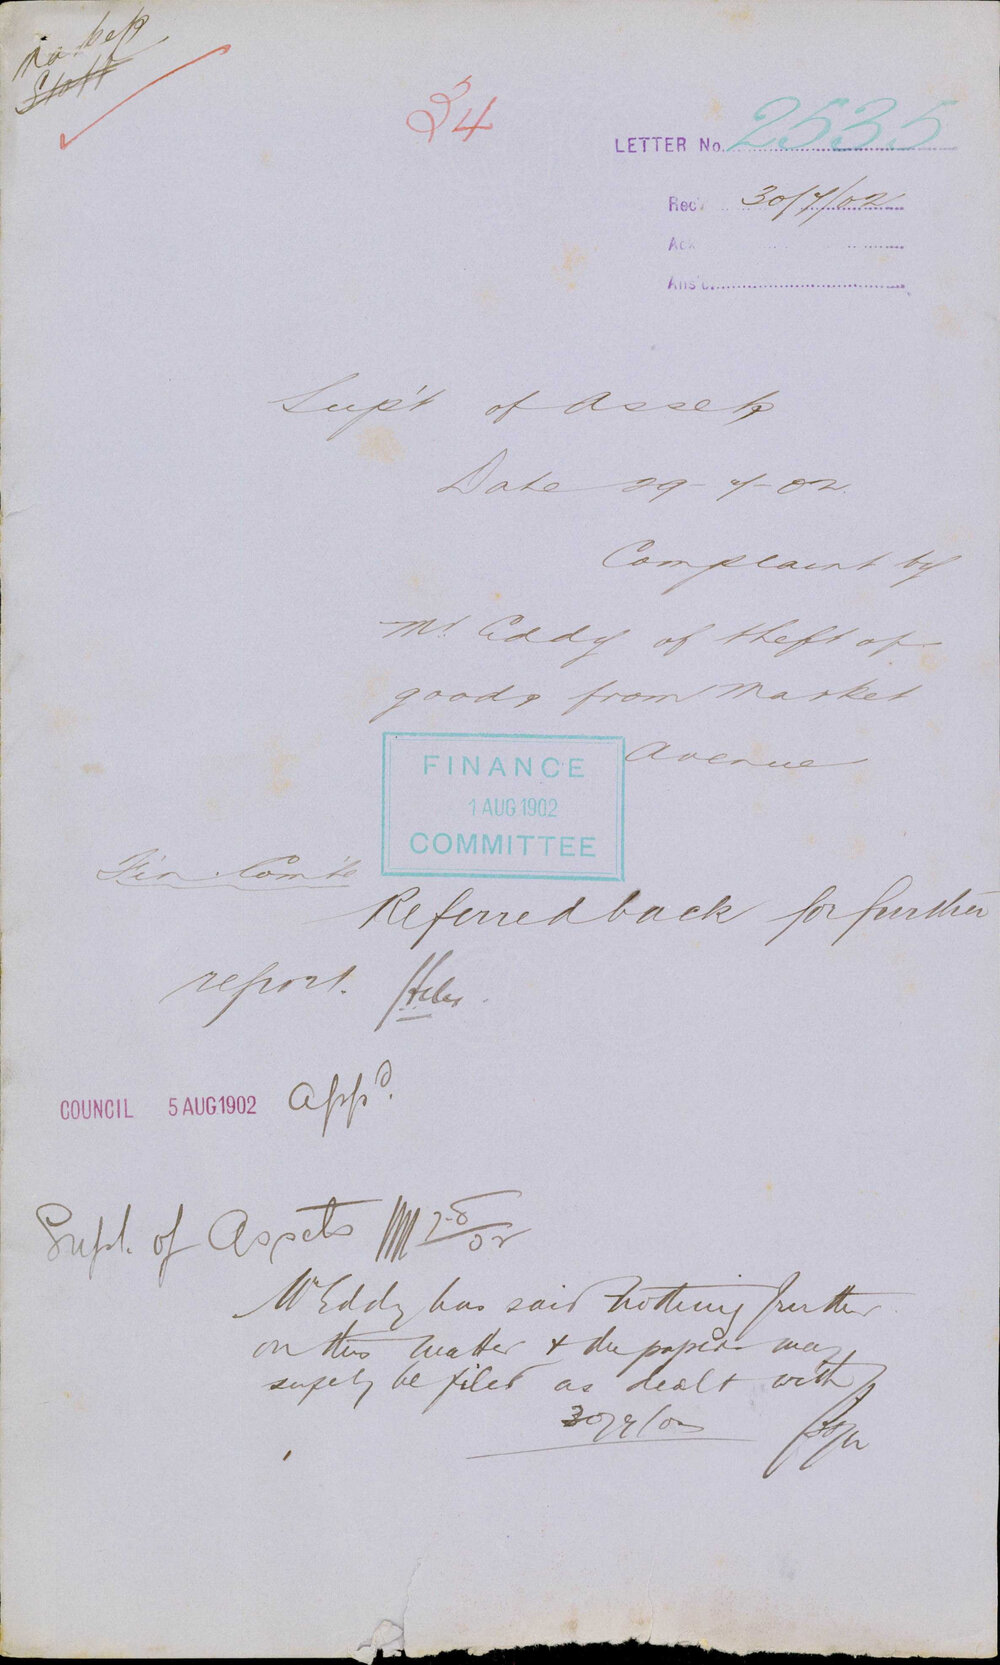 Staff
34
LETTER No. 2535
Rec'd 30/7/02
Ack
Ans'd
Sup't of Assets
Date 29-7-02
Complaint by
Mr Eddy of theft of
goods from Market
Avenue
FINANCE
1 AUG 1902
COMMITTEE
Fin. Com'te
Referred back for further
report.
COUNCIL 5 AUG 1902 Appd.
Supt. of Assets
Mr Eddy has said nothing further
on this matter & the papers may
safely be filed as dealt with